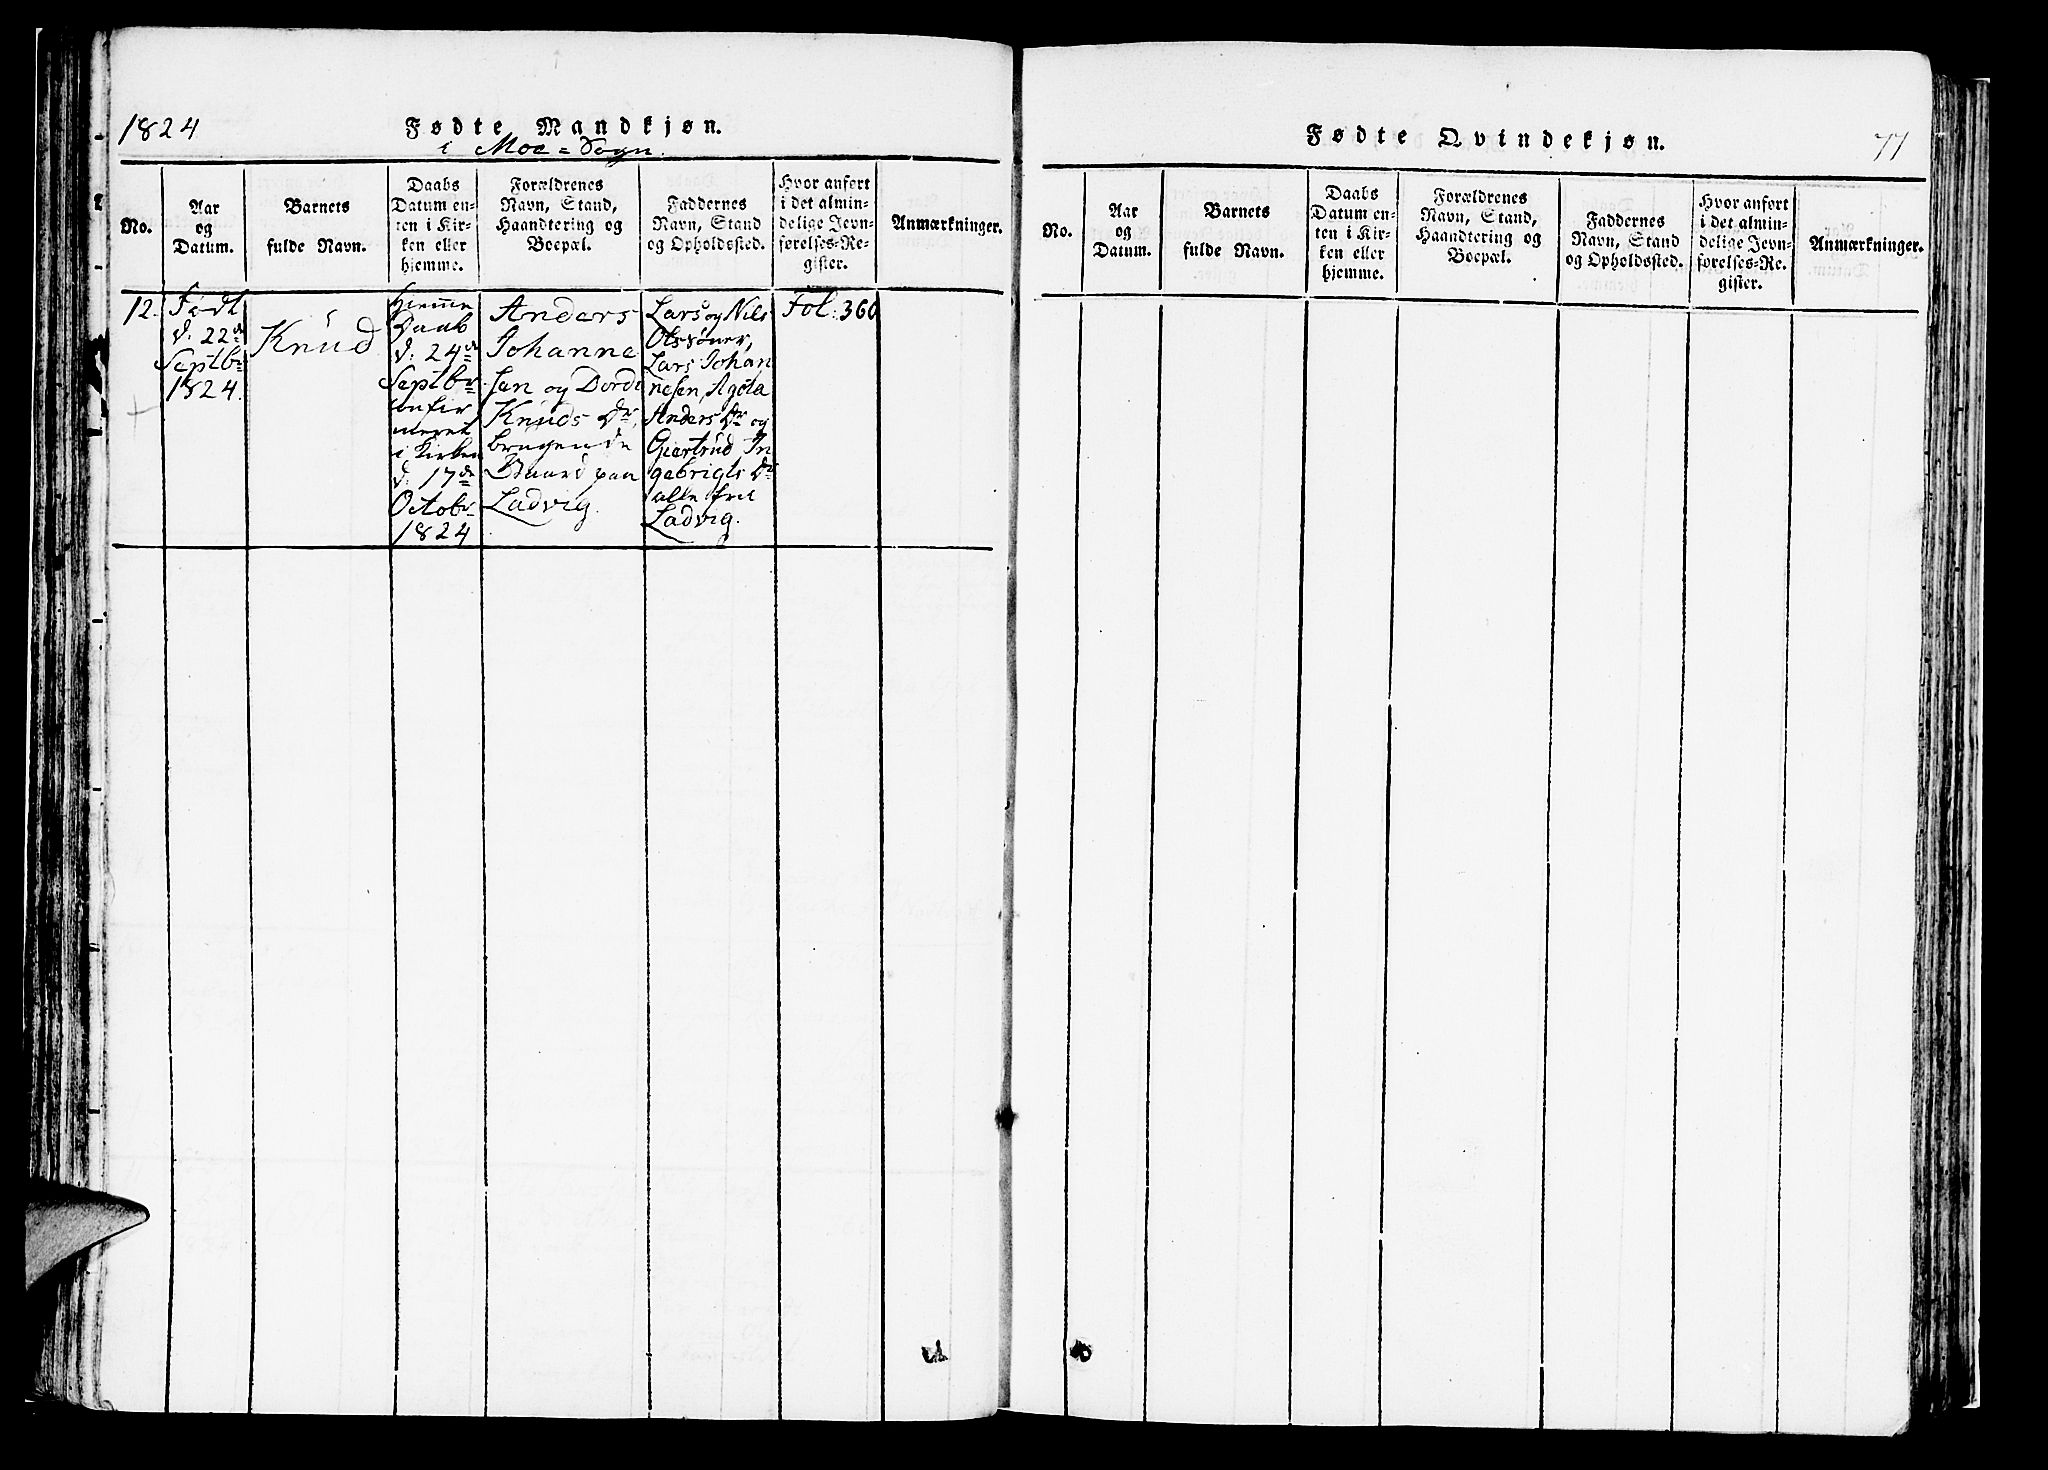 1824
Fødte Mandkjøn.
i Moe = Sogn.
No.
Aar
og
Datum.
Barnets
fulde Navn.
Daabs
Datum en-
ten i Kir-
ken eller
hjemme.
Forældrenes
Navn, Stand,
Haandtering og
Boepæl.
Faddernes
Navn, Stand
og Opholdssted.
Hvor anført
i det almin-
delige Jevn-
førelses-Re-
gister.
Anmærkninger.
12.
Født
d: 22de
Septbr
1824.
Knud
Hjemme
Daab
d: 24de
Septbr.
confir
meret
i Kirken
d: 17de
Octobr
1824
Anders
Johanne
sen og Dorde
Knuds Dr,
brugende
Baard paa
Ladvig.
Lars og Nils
Olssøner,
Lars Johan
nesen, Agota
Anders Dr og
Giertrud In
gebrigts Dr
alle fra
Ladvig.
Fol: 360
Fødte Qvindekjøn.
77
No.
Aar
og
Datum.
Barnets
fulde Navn.
Daabs
Datum en-
ten i Kir-
ken eller
hjemme.
Forældrenes
Navn, Stand,
Haandtering og
Boepæl.
Faddernes
Navn, Stand
og Opholdssted.
Hvor anført
i det almin-
delige Jevn-
førelses-Re-
gister.
Anmærkninger.